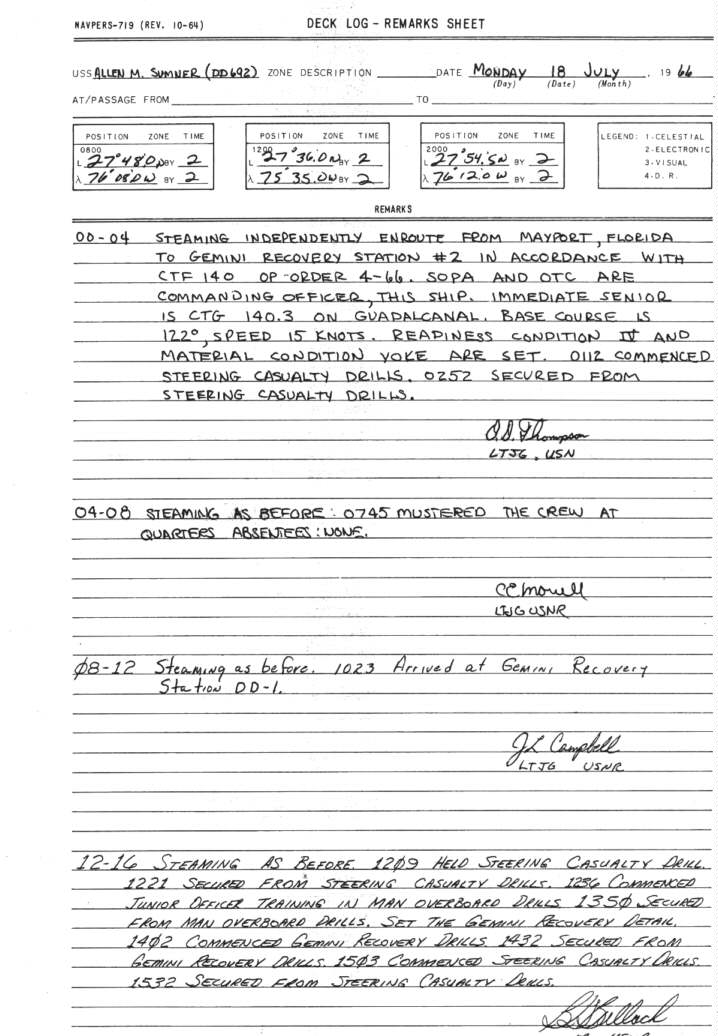 NAVPERS-719 (REV. 10-64)
DECK LOG – REMARKS SHEET
USS ALLEN M. SUMNER (DD692) ZONE DESCRIPTION DATE MONDAY 18 JULY , 19 66
(Day) (Date) (Month)
AT/PASSAGE FROM TO
POSITION ZONE TIME
0800
L 27°48'0N BY 2
λ 76°08'0W BY 2
POSITION ZONE TIME
1200
L 27°36.0N BY 2
λ 75°35.0W BY 2
POSITION ZONE TIME
2000
L 27°54.5N BY 2
λ 76°12.0W BY 2
LEGEND: 1-CELESTIAL
2-ELECTRONIC
3-VISUAL
4-D. R.
REMARKS
00-04 STEAMING INDEPENDENTLY ENROUTE FROM MAYPORT, FLORIDA
TO GEMINI RECOVERY STATION #2 IN ACCORDANCE WITH
CTF 140 OP-ORDER 4-66. SOPA AND OTC ARE
COMMANDING OFFICER, THIS SHIP. IMMEDIATE SENIOR
IS CTG 140.3 ON GUADALCANAL. BASE COURSE IS
122°, SPEED 15 KNOTS. READINESS CONDITION IV AND
MATERIAL CONDITION YOKE ARE SET. 0112 COMMENCED
STEERING CASUALTY DRILLS. 0252 SECURED FROM
STEERING CASUALTY DRILLS.
Thompson
LTJG, USN
04-08 STEAMING AS BEFORE: 0745 MUSTERED THE CREW AT
QUARTERS ABSENTEES: NONE.
LTJG USNR
Ø8-12 Steaming as before. 1023 Arrived at Gemini Recovery
Station DD-1.
JL Campbell
LTJG USNR
12-16 STEAMING AS BEFORE. 12Ø9 HELD STEERING CASUALTY DRILL.
1221 SECURED FROM STEERING CASUALTY DRILLS. 1236 COMMENCED
JUNIOR OFFICER TRAINING IN MAN OVERBOARD DRILLS 135Ø SECURED
FROM MAN OVERBOARD DRILLS. SET THE GEMINI RECOVERY DETAIL.
14Ø2 COMMENCED GEMINI RECOVERY DRILLS 1432 SECURED FROM
GEMINI RECOVERY DRILLS. 15Ø3 COMMENCED STEERING CASUALTY DRILLS.
1532 SECURED FROM STEERING CASUALTY DRILLS.
Bullock